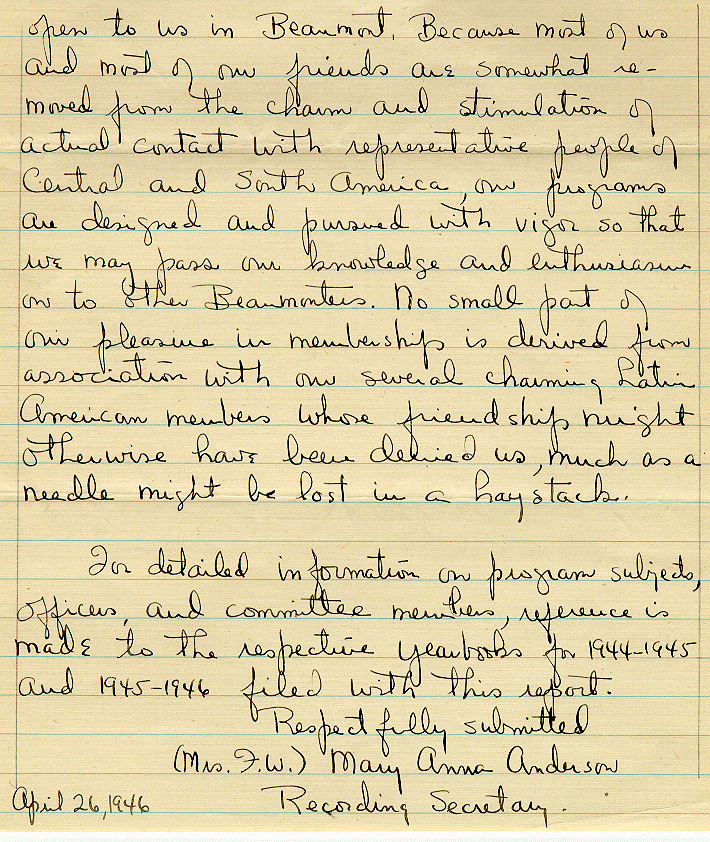 open to us in Beaumont. Because most of us
and most of our friends are somewhat re-
moved from the charm and stimulation of
actual contact with representative people of
Central and South America, our programs
are designed and pursued with vigor so that
we may pass our knowledge and enthusiasm
on to other Beaumonters. No small part of
our pleasure in membership is derived from
association with our several charming Latin
American members whose friendship might
otherwise have been denied us, much as a
needle might be lost in a haystack.
For detailed information on program subjects,
officers, and committee members, reference is
made to the respective yearbooks for 1944-1945
and 1945-1946 filed with this report.
Respectfully submitted
(Mrs. F.W.) Mary Anna Anderson
April 26, 1946 Recording Secretary.